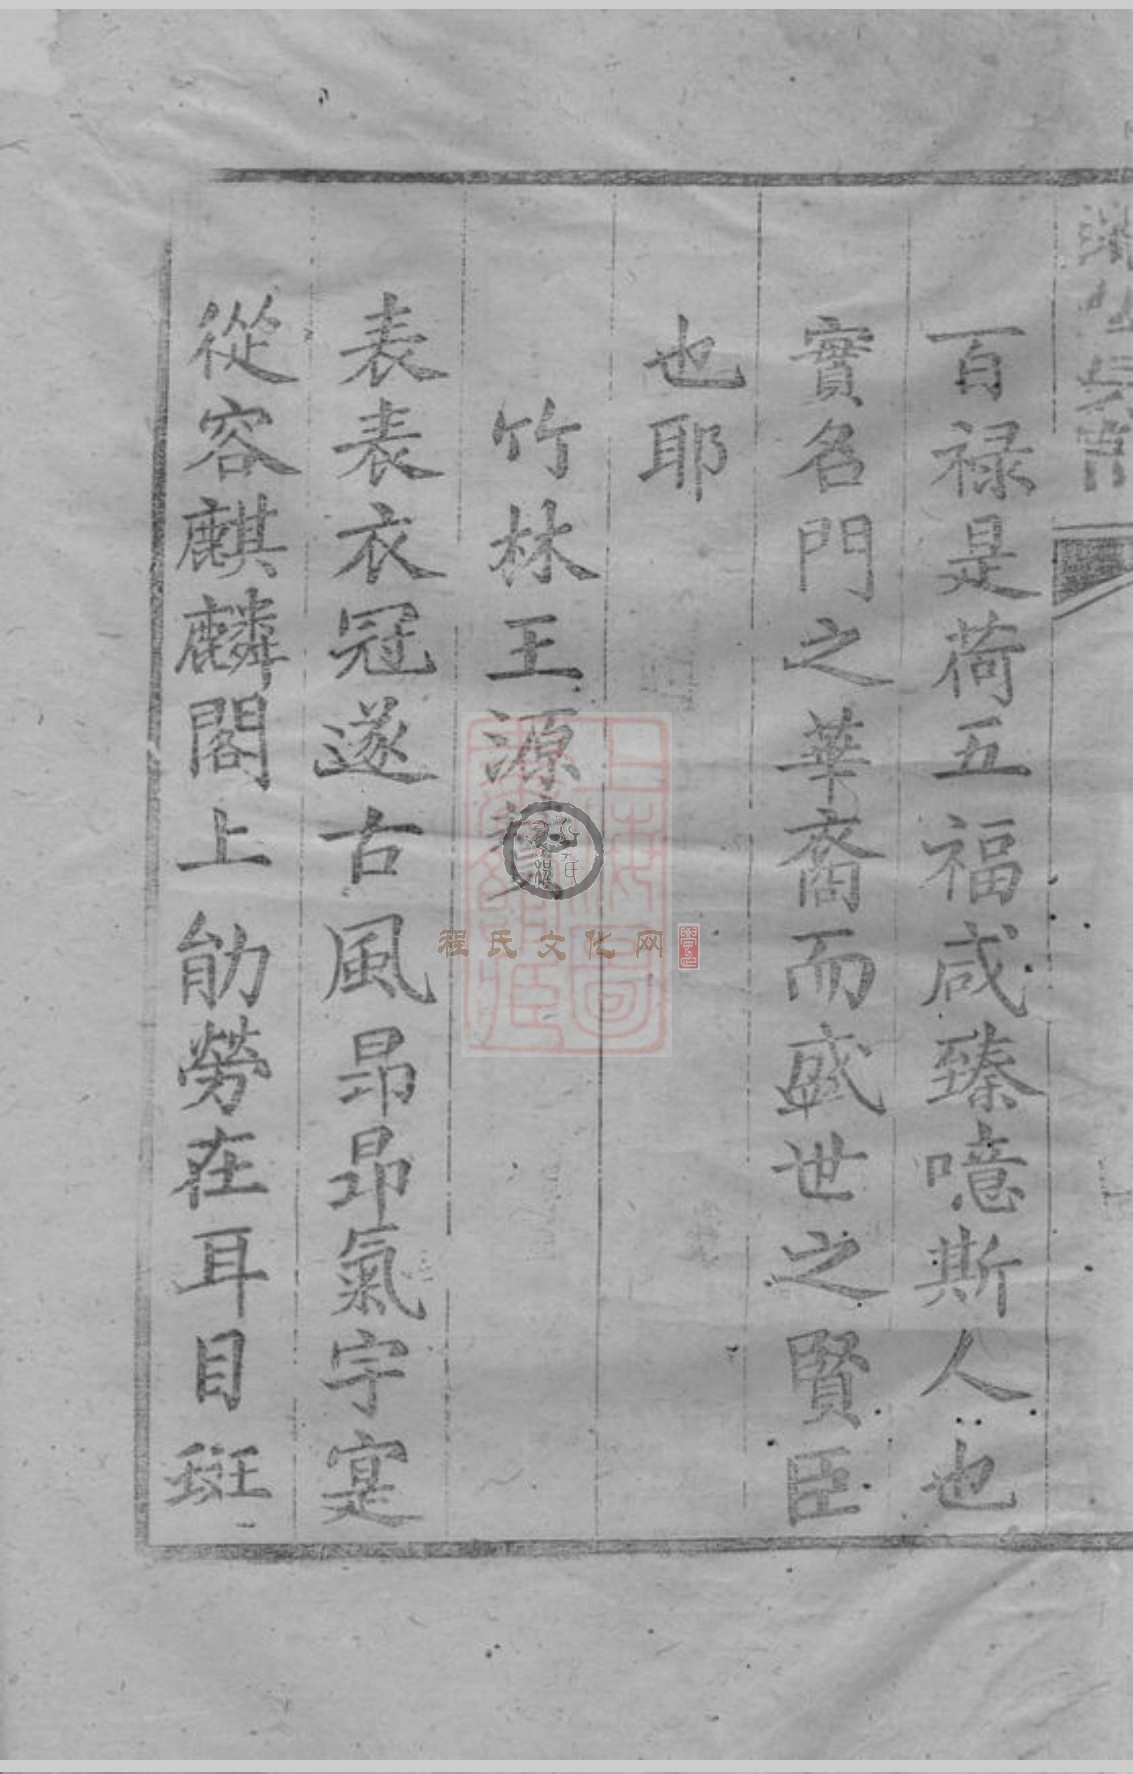 百禄是荷五福咸臻噫斯人也
實名門之華裔而盛世之賢臣
也耶
竹林王源
表表衣冠遂古風昂昂氣宇寔
從容麒麟閣上勛勞在耳目斑
程氏文化网